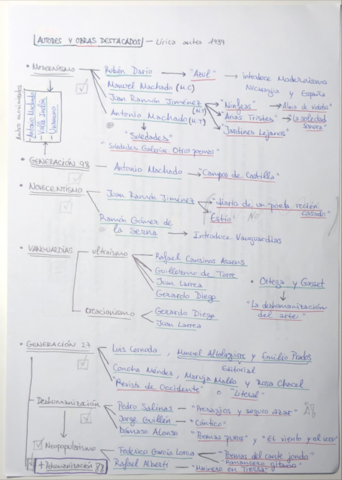 AUTORES Y OBRAS DESTACADOS - Lírica antes 1939
• MODERNISMO
Rubén Darío → "Azul" → introduce Modernismo
Nicaragua y España
Manuel Machado
Juan Ramón Jiménez → "Ninfeas"
"Arias Tristes" → "La soledad sonora"
"Jardines lejanos"
Antonio Machado
"Soledades"
"Soledades Galerías Otros poemas"
Antonio Machado
Unamuno
• GENERACIÓN 98 → Antonio Machado → "Campos de Castilla"
• NOVECENTISMO
Juan Ramón Jiménez → "Diario de un poeta recién casado"
Estío
Ramón Gómez de la Serna → Introduce Vanguardias
• VANGUARDIAS
Ultraísmo
Rafael Cansinos Assens
Guillermo de Torre
Juan Larrea
Gerardo Diego
• Ortega y Gasset
"La deshumanización del arte"
Creacionismo
Gerardo Diego
Juan Larrea
• GENERACIÓN 27
Luis Cernuda, Manuel Altolaguirre y Emilio Prados
Editorial
Concha Méndez, Maruja Mallo y Rosa Chacel
"Revista de Occidente" o "Litoral"
Deshumanización
Pedro Salinas → "Presagios y seguro azar"
Jorge Guillén → "Cántico"
Dámaso Alonso → "Poemas puros" y "El viento y el verso"
Neopopularismo
Federico García Lorca → "Poema del cante jondo"
Romancero gitano
Rafael Alberti → "Marinero en tierra"